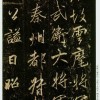 故雲麾將軍
武衛大將軍
秦州都督
公謚曰昭